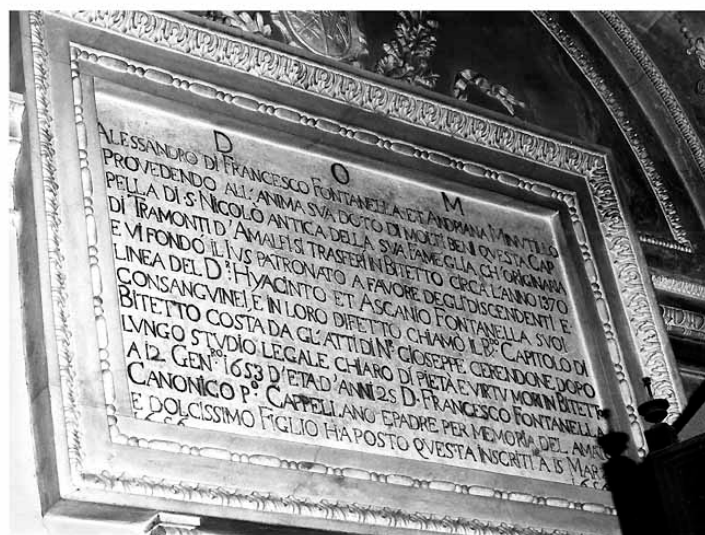 D O M
ALESSANDRO DI FRANCESCO FONTANELLA ET ANDRIANA MINVTILLO
PROVEDENDO ALL'ANIMA SVA DOTO DI MOLTI BENI QVESTA CAP
PELLA DI S. NICOLO ANTICA DELLA SVA FAMEGLIA CH'ORIGINARIA
DI TRAMONTI D'AMALFI SI TRASFERI IN BITETTO CIRCA L'ANNO 1370
E VI FONDO IL IVS PATRONATO A FAVORE DEGLI DISCENDENTI E
LINEA DEL Dr HYACINTO ET ASCANIO FONTANELLA SVOI
CONSANGVINEI E IN LORO DIFETTO CHIAMO IL Rdo CAPITOLO DI
BITETTO COSTA DA GL'ATTI DI Nr GIOSEPPE CERENDONE DOPO
LVNGO STVDIO LEGALE CHIARO DI PIETA E VIRTV MORI IN BITETTO
A 12 GENro 1653 D'ETA D'ANNI 25 D. FRANCESCO FONTANELLA
CANONICO Po CAPPELLANO E PADRE PER MEMORIA DEL AMATO
E DOLCISSIMO FIGLIO HA POSTO QVESTA INSCRITI A 15 MAR